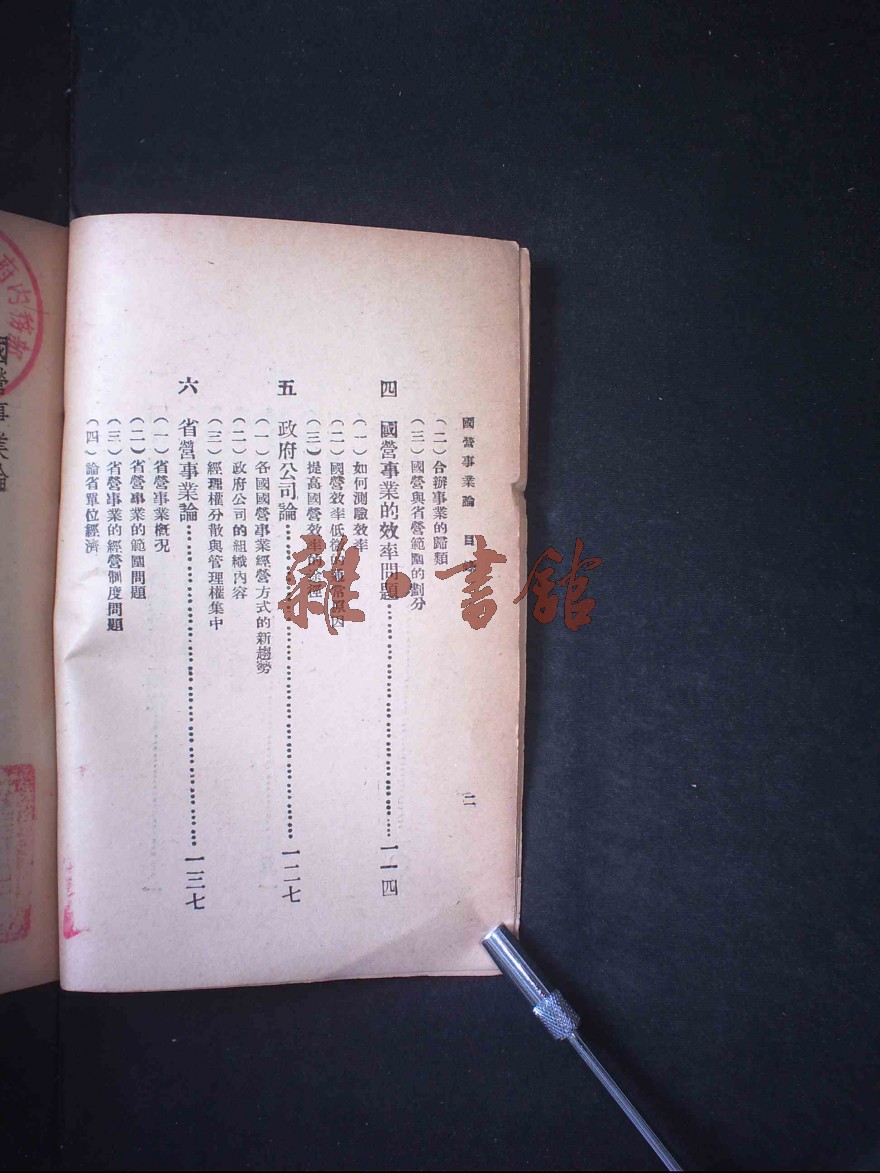 國營事業論 目 二
(二)合辦事業的歸類
(三)國營與省營範圍的劃分
四 國營事業的效率問題……一一四
(一)如何測驗效率
(二)國營效率低 的 常原因
(三)提高國營效率的途徑
五 政府公司論……一二七
(一)各國國營事業經營方式的新趨勢
(二)政府公司的組織內容
(三)經理權分散與管理權集中
六 省營事業論……一三七
(一)省營事業概况
(二)省營事業的範圍問題
(三)省營事業的經營制度問題
(四)論省單位經濟
國營事業論
內務部
雜·書館